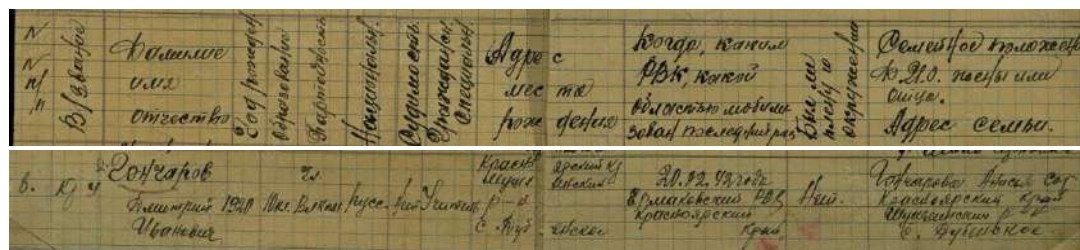 N N п/п В/звание Фамилие имя отчество Год рожден. Образование Партейность Национальн. Судимость Гражданск. Специальн. Адрес места рождения Когда, каким РВК, какой областью мобилизован последний раз Был ли в плену и окружении Семейное положение Ф.И.О. жены или отца. Адрес семьи.
6. Кр Гончаров Дмитрий Иванович 1920 Чл. Влксм русс. нет Красноярский Шуш енский р-н С. 20.02.42 года Ермаковский РВК Красноярский Край Нет. Гончарова Красноярский край Шушенский р-н с. Дубенское